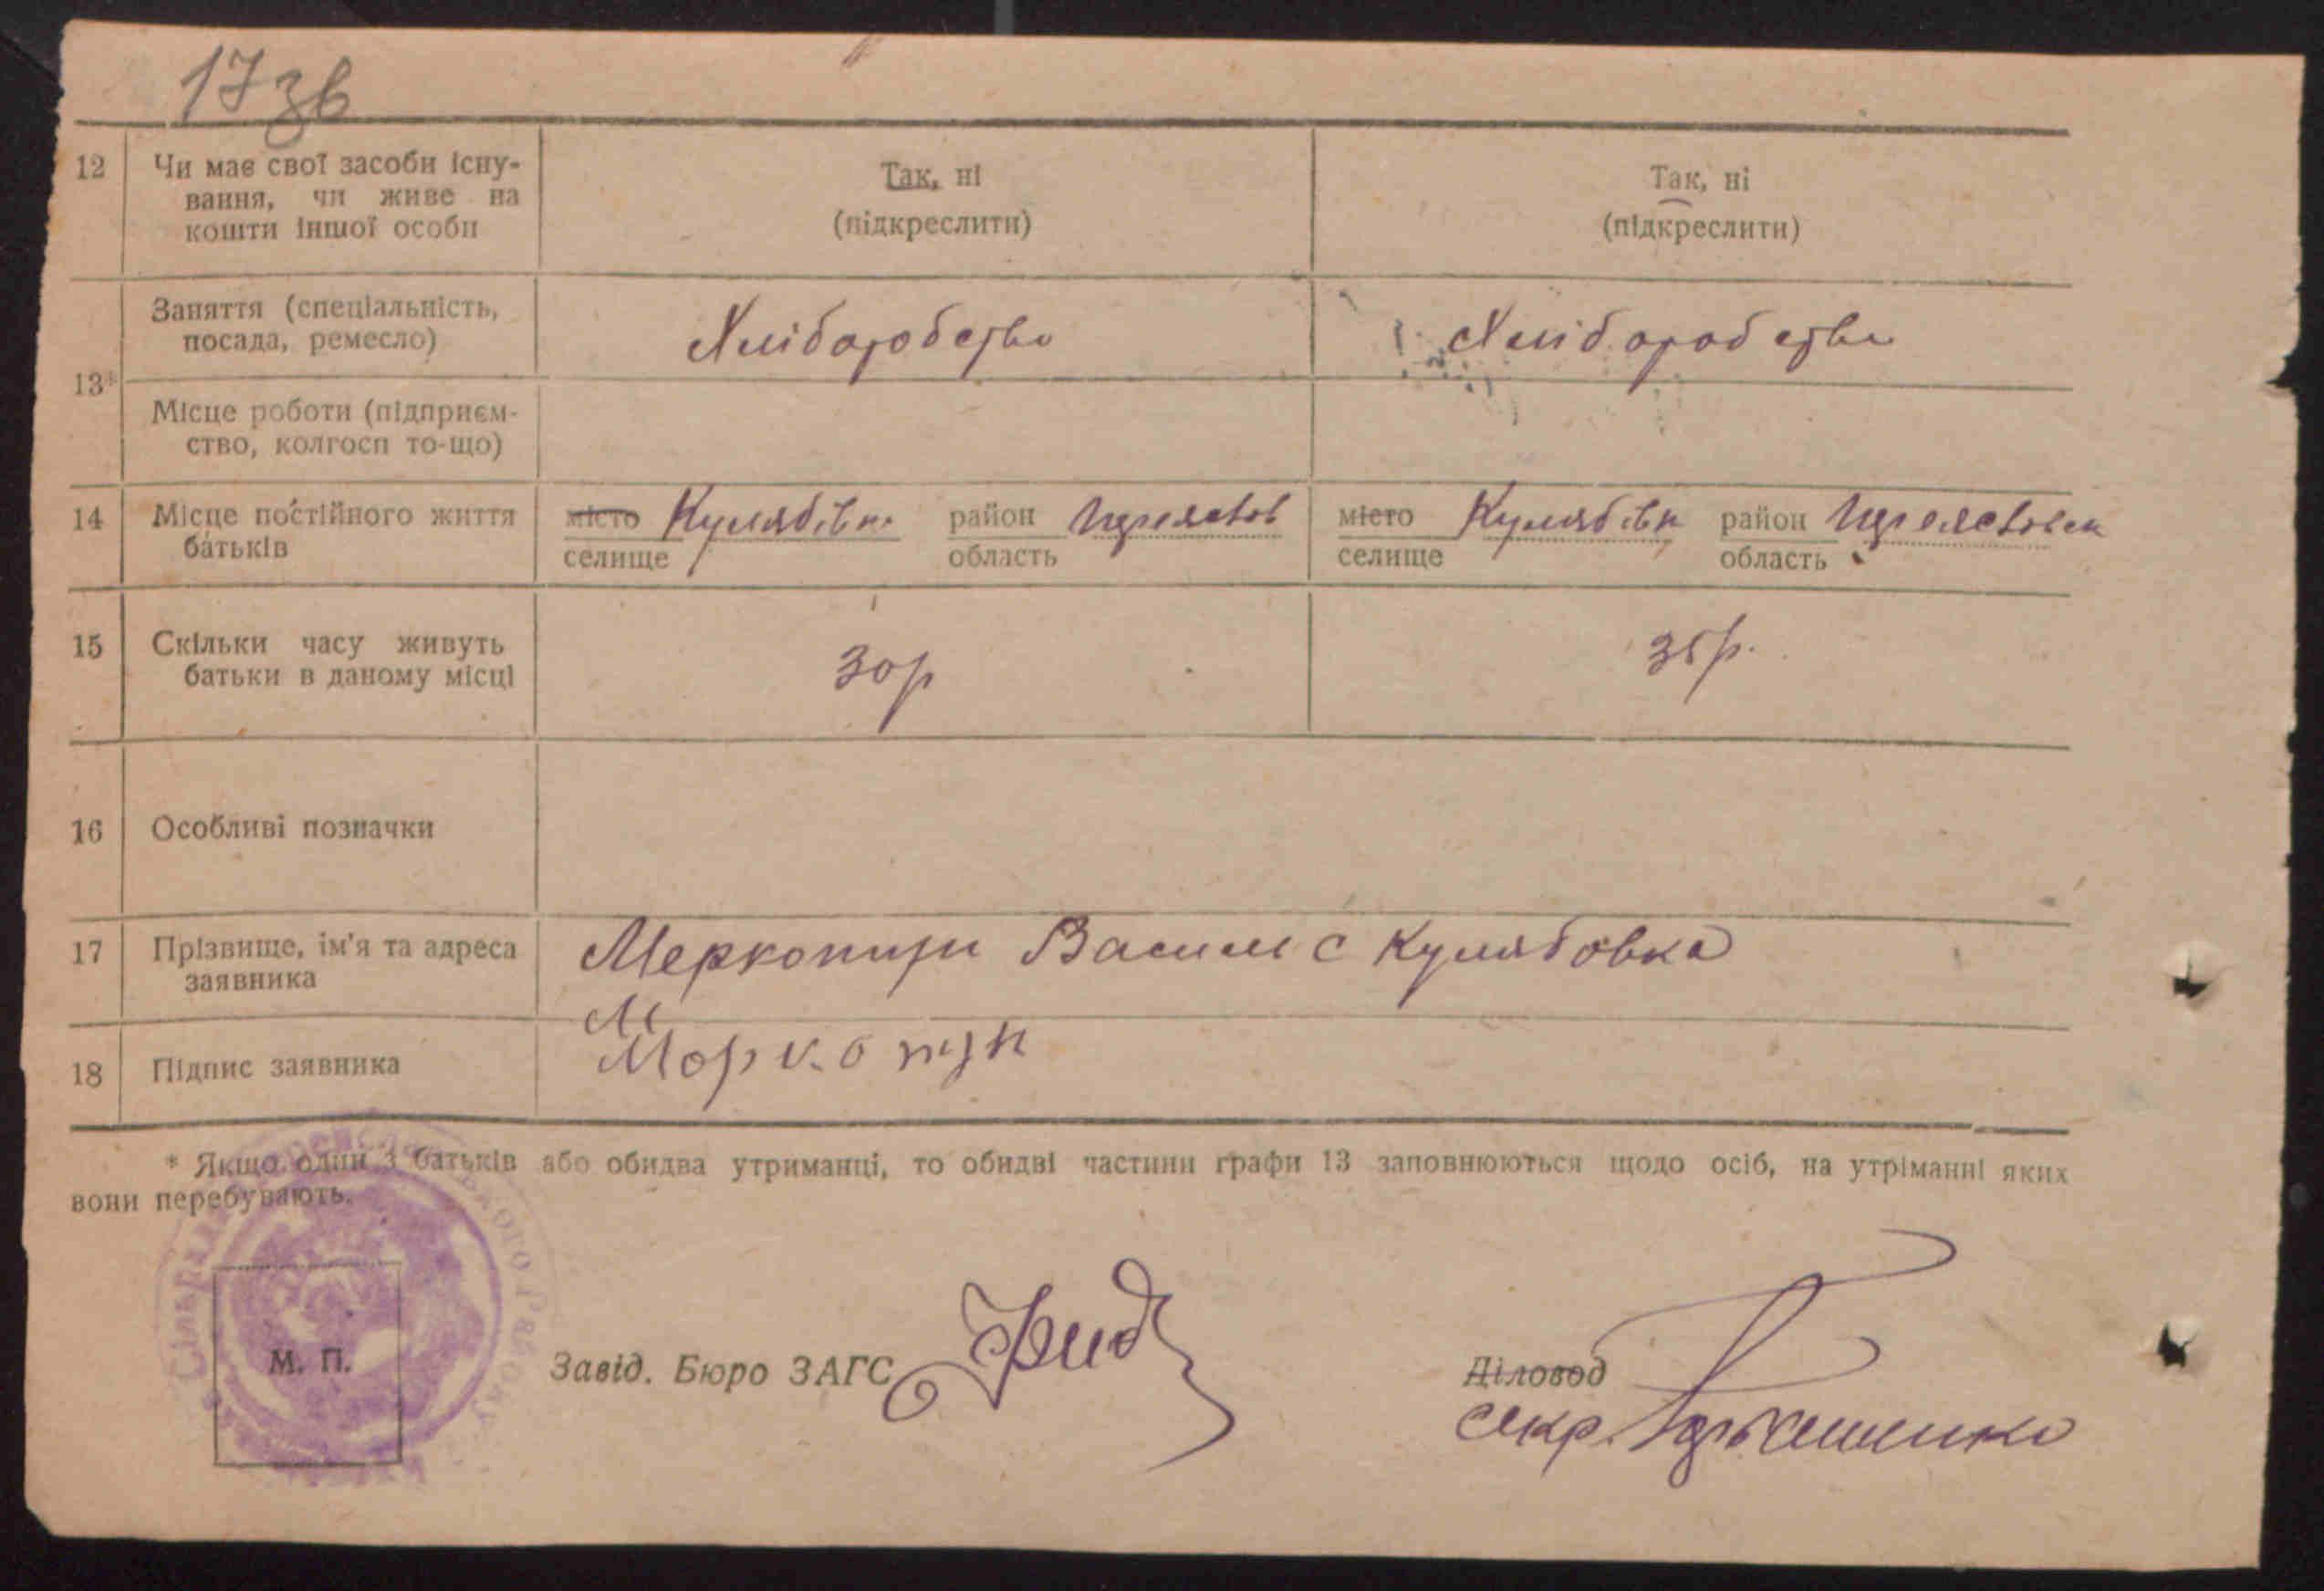 17 зв
12 Чи має свої засоби існу-
вання, чи живе на
кошти іншої особи
Так, ні
(підкреслити)
Так, ні
(підкреслити)
13*
Заняття (спеціальність,
посада, ремесло)
Хліборобство
Хліборобство
Місце роботи (підприєм-
ство, колгосп то-що)
14 Місце постійного життя
батьків
місто Кулябівка район
селище область
місто Кулябівк район
селище область
15 Скільки часу живуть
батьки в даному місці
30 р
35 р.
16 Особливі позначки
17 Прізвище, ім'я та адреса
заявника
Василь с Кулябовка
18 Підпис заявника
* Якщо один з батьків або обидва утриманці, то обидві частини графи 13 заповнюються щодо осіб, на утріманні яких
вони перебувають.
М. П.
Завід. Бюро ЗАГС
Діловод
секр.